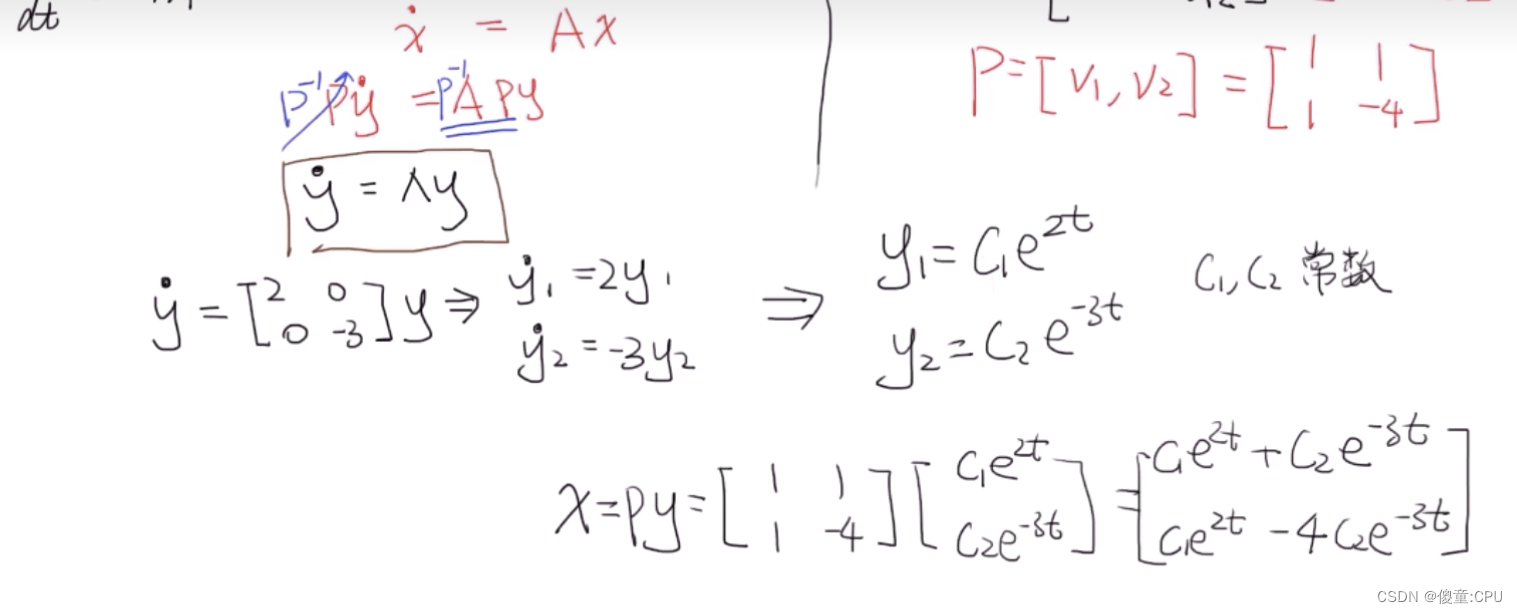 dt
ẋ = Ax
P⁻¹Pẏ = P⁻¹APy
ẏ = Λy
P = [v₁, v₂] = [1 1; 1 -4]
ẏ = [2 0; 0 -3] y ⇒ ẏ₁ = 2y₁
ẏ₂ = -3y₂
⇒ y₁ = C₁e^{2t}
y₂ = C₂e^{-3t}
C₁, C₂ 常数
x = Py = [1 1; 1 -4] [C₁e^{2t}; C₂e^{-3t}] = [C₁e^{2t} + C₂e^{-3t}; C₁e^{2t} - 4C₂e^{-3t}]
CSDN @傻童:CPU